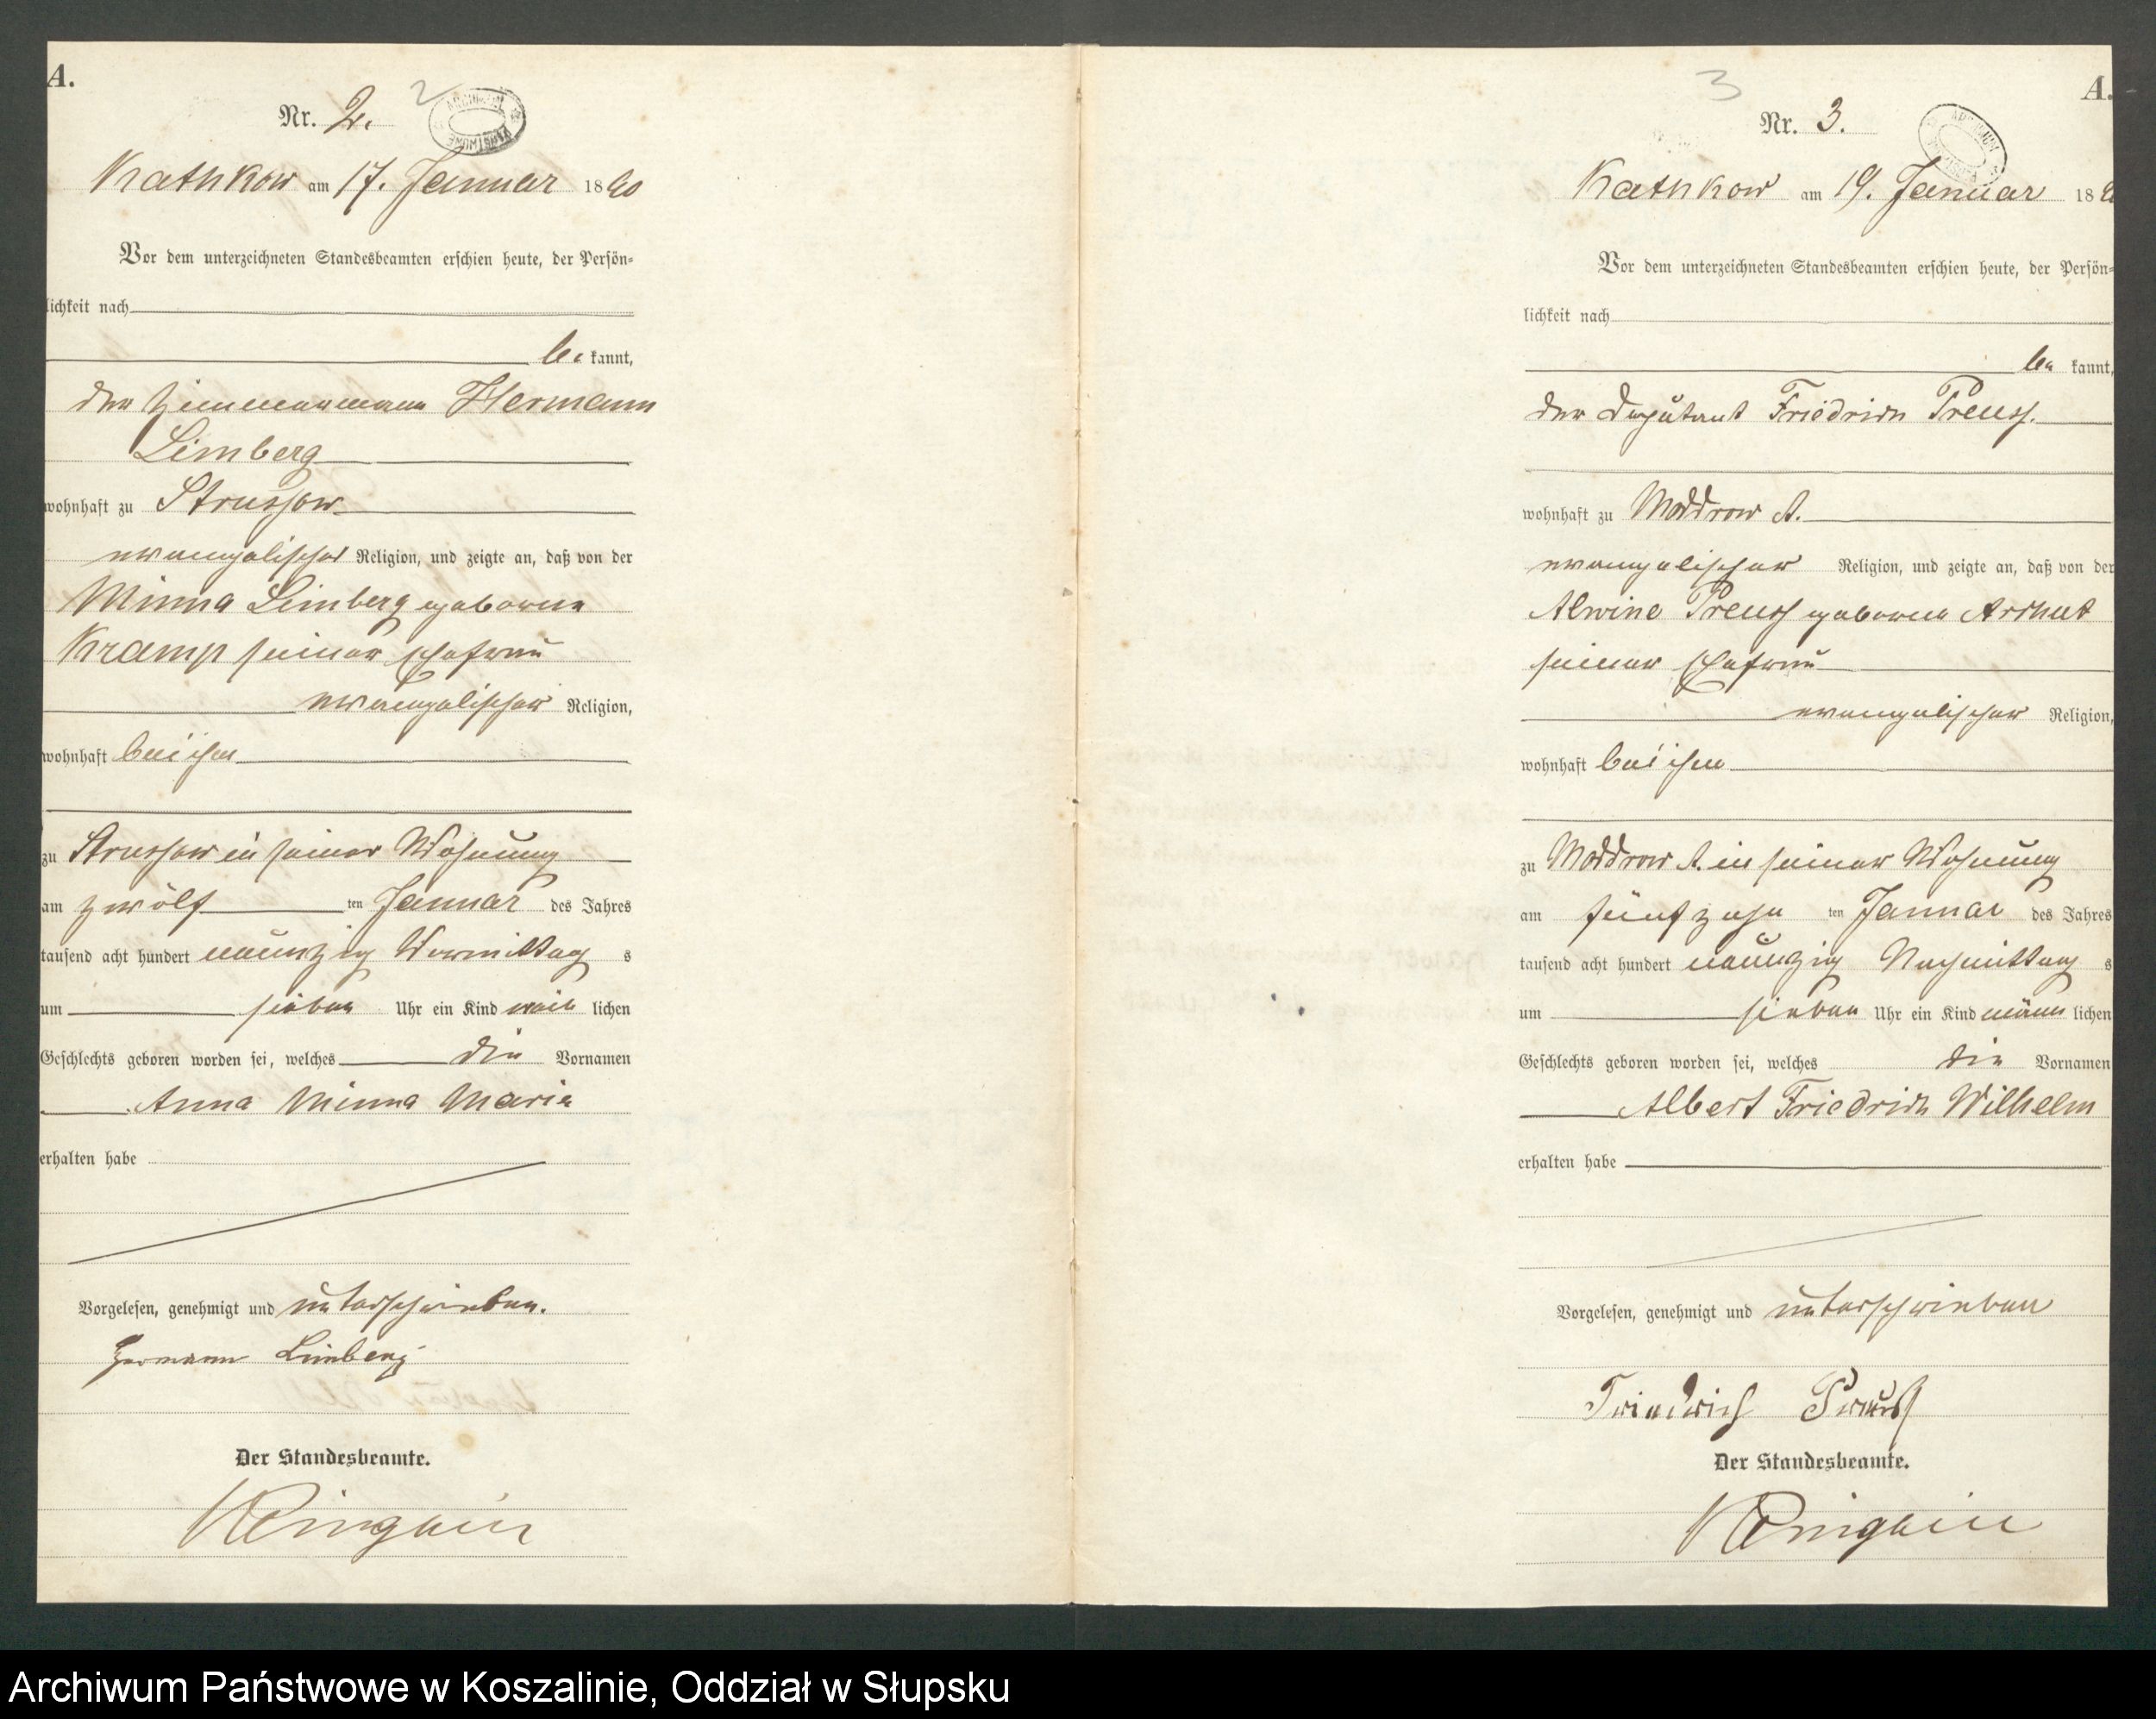 A.
Nr. 2.
2
Kathkow am 17. Januar 1890
Vor dem unterzeichneten Standesbeamten erschien heute, der Persön-
lichkeit nach
be kannt,
der Zimmermann Hermann
Limberg
wohnhaft zu Strussow
evangelischer Religion, und zeigte an, daß von der
Minna Limberg geborene
Kramp seiner Ehefrau
evangelischer Religion,
wohnhaft bei ihm
zu Strussow in seiner Wohnung
am zwölf ten Januar des Jahres
tausend acht hundert neunzig Vormittag s
um sieben Uhr ein Kind weib lichen
Geschlechts geboren worden sei, welches die Vornamen
Anna Minna Maria
erhalten habe
Vorgelesen, genehmigt und unterschrieben.
Hermann Limberg
Der Standesbeamte.
A.
3
Nr. 3.
Kathkow am 19. Januar 189
Vor dem unterzeichneten Standesbeamten erschien heute, der Persön-
lichkeit nach
be kannt,
der Deputant Friedrich Preuss.
wohnhaft zu Moddrow A.
evangelischer Religion, und zeigte an, daß von der
Alwine Preuss geborene Arndt
seiner Ehefrau
evangelischer Religion,
wohnhaft bei ihm
zu Moddrow A. in seiner Wohnung
am fünfzehn ten Januar des Jahres
tausend acht hundert neunzig Nachmittag s
um sieben Uhr ein Kind männ lichen
Geschlechts geboren worden sei, welches die Vornamen
Albert Friedrich Wilhelm
erhalten habe
Vorgelesen, genehmigt und unterschrieben
Friedrich Preuß
Der Standesbeamte.
Archiwum Państwowe w Koszalinie, Oddział w Słupsku